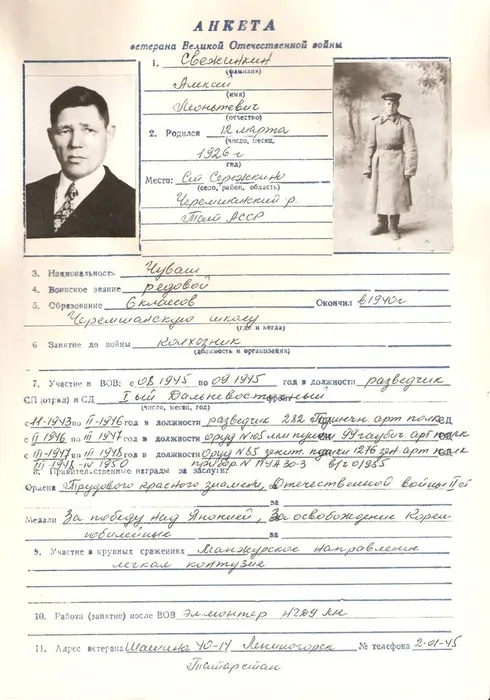 АНКЕТА
ветерана Великой Отечественной войны
1. Свежинкин
(фамилия)
Алексей
(имя)
Леонтьевич
(отчество)
2. Родился 12 марта
(число, месяц,
1926 г
год)
Место: Ст Сережкино
(село, район, область)
Черемшанский р.
Тат АССР
3. Национальность Чуваш
4. Воинское звание редовой
5. Образование 6 классов Окончил в 1940г
Черемшанскую школу
(где и когда)
6 Занятие до войны колхозник
(должность и организация)
7. Участие в ВОВ: с 08 1945 по 09 1945 год в должности разведчик
СП (отряд) и СД I ый Дальневосточный фронт
(число, месяц, год)
с 11-1943 по II-1946 год в должности разведчик 282 арт полк СД
с II 1946 по III 1947 год в должности оруд N 105 мм пушки 99 гаубич арт полк
с III-1947 по III 1948 год в должности оруд N 85 зенит. пушки 1276 зен. арт полк
III 1948-IV 1950 прибор N ПУАЗО-3 в/ч 01955
8. Правительственные награды за заслуги:
Ордена Трудового красного знамени, Отечественной войны II ой
за
Медали За победу над Японией, За освобождение Кореи
юбилейные за
9. Участие в крупных сражениях Манжурское направление
легкая контузия
10. Работа (занятие) после ВОВ эл монтер НГДУ Лн
11. Адрес ветерана Шашина 40-14 Лениногорск № телефона 2-01-45
Татарстан